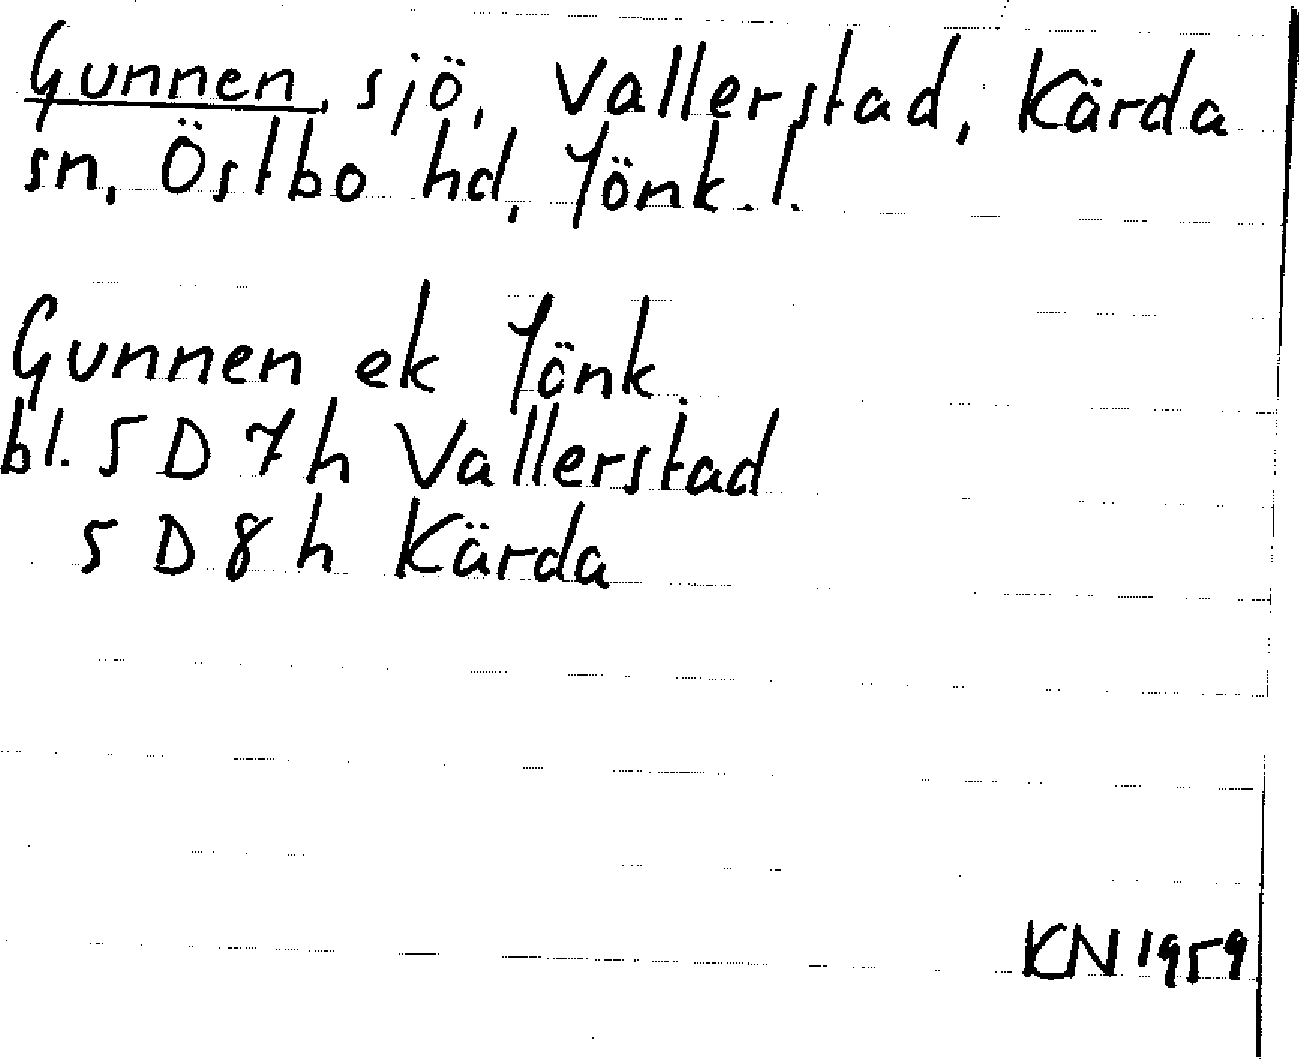 Gunnen, sjö, Vallerstad, Kärda
sn, Östbo hd, Jönk. l.
Gunnen ek Jönk.
bl. 5 D 7 h Vallerstad
5 D 8 h Kärda
KN 1959